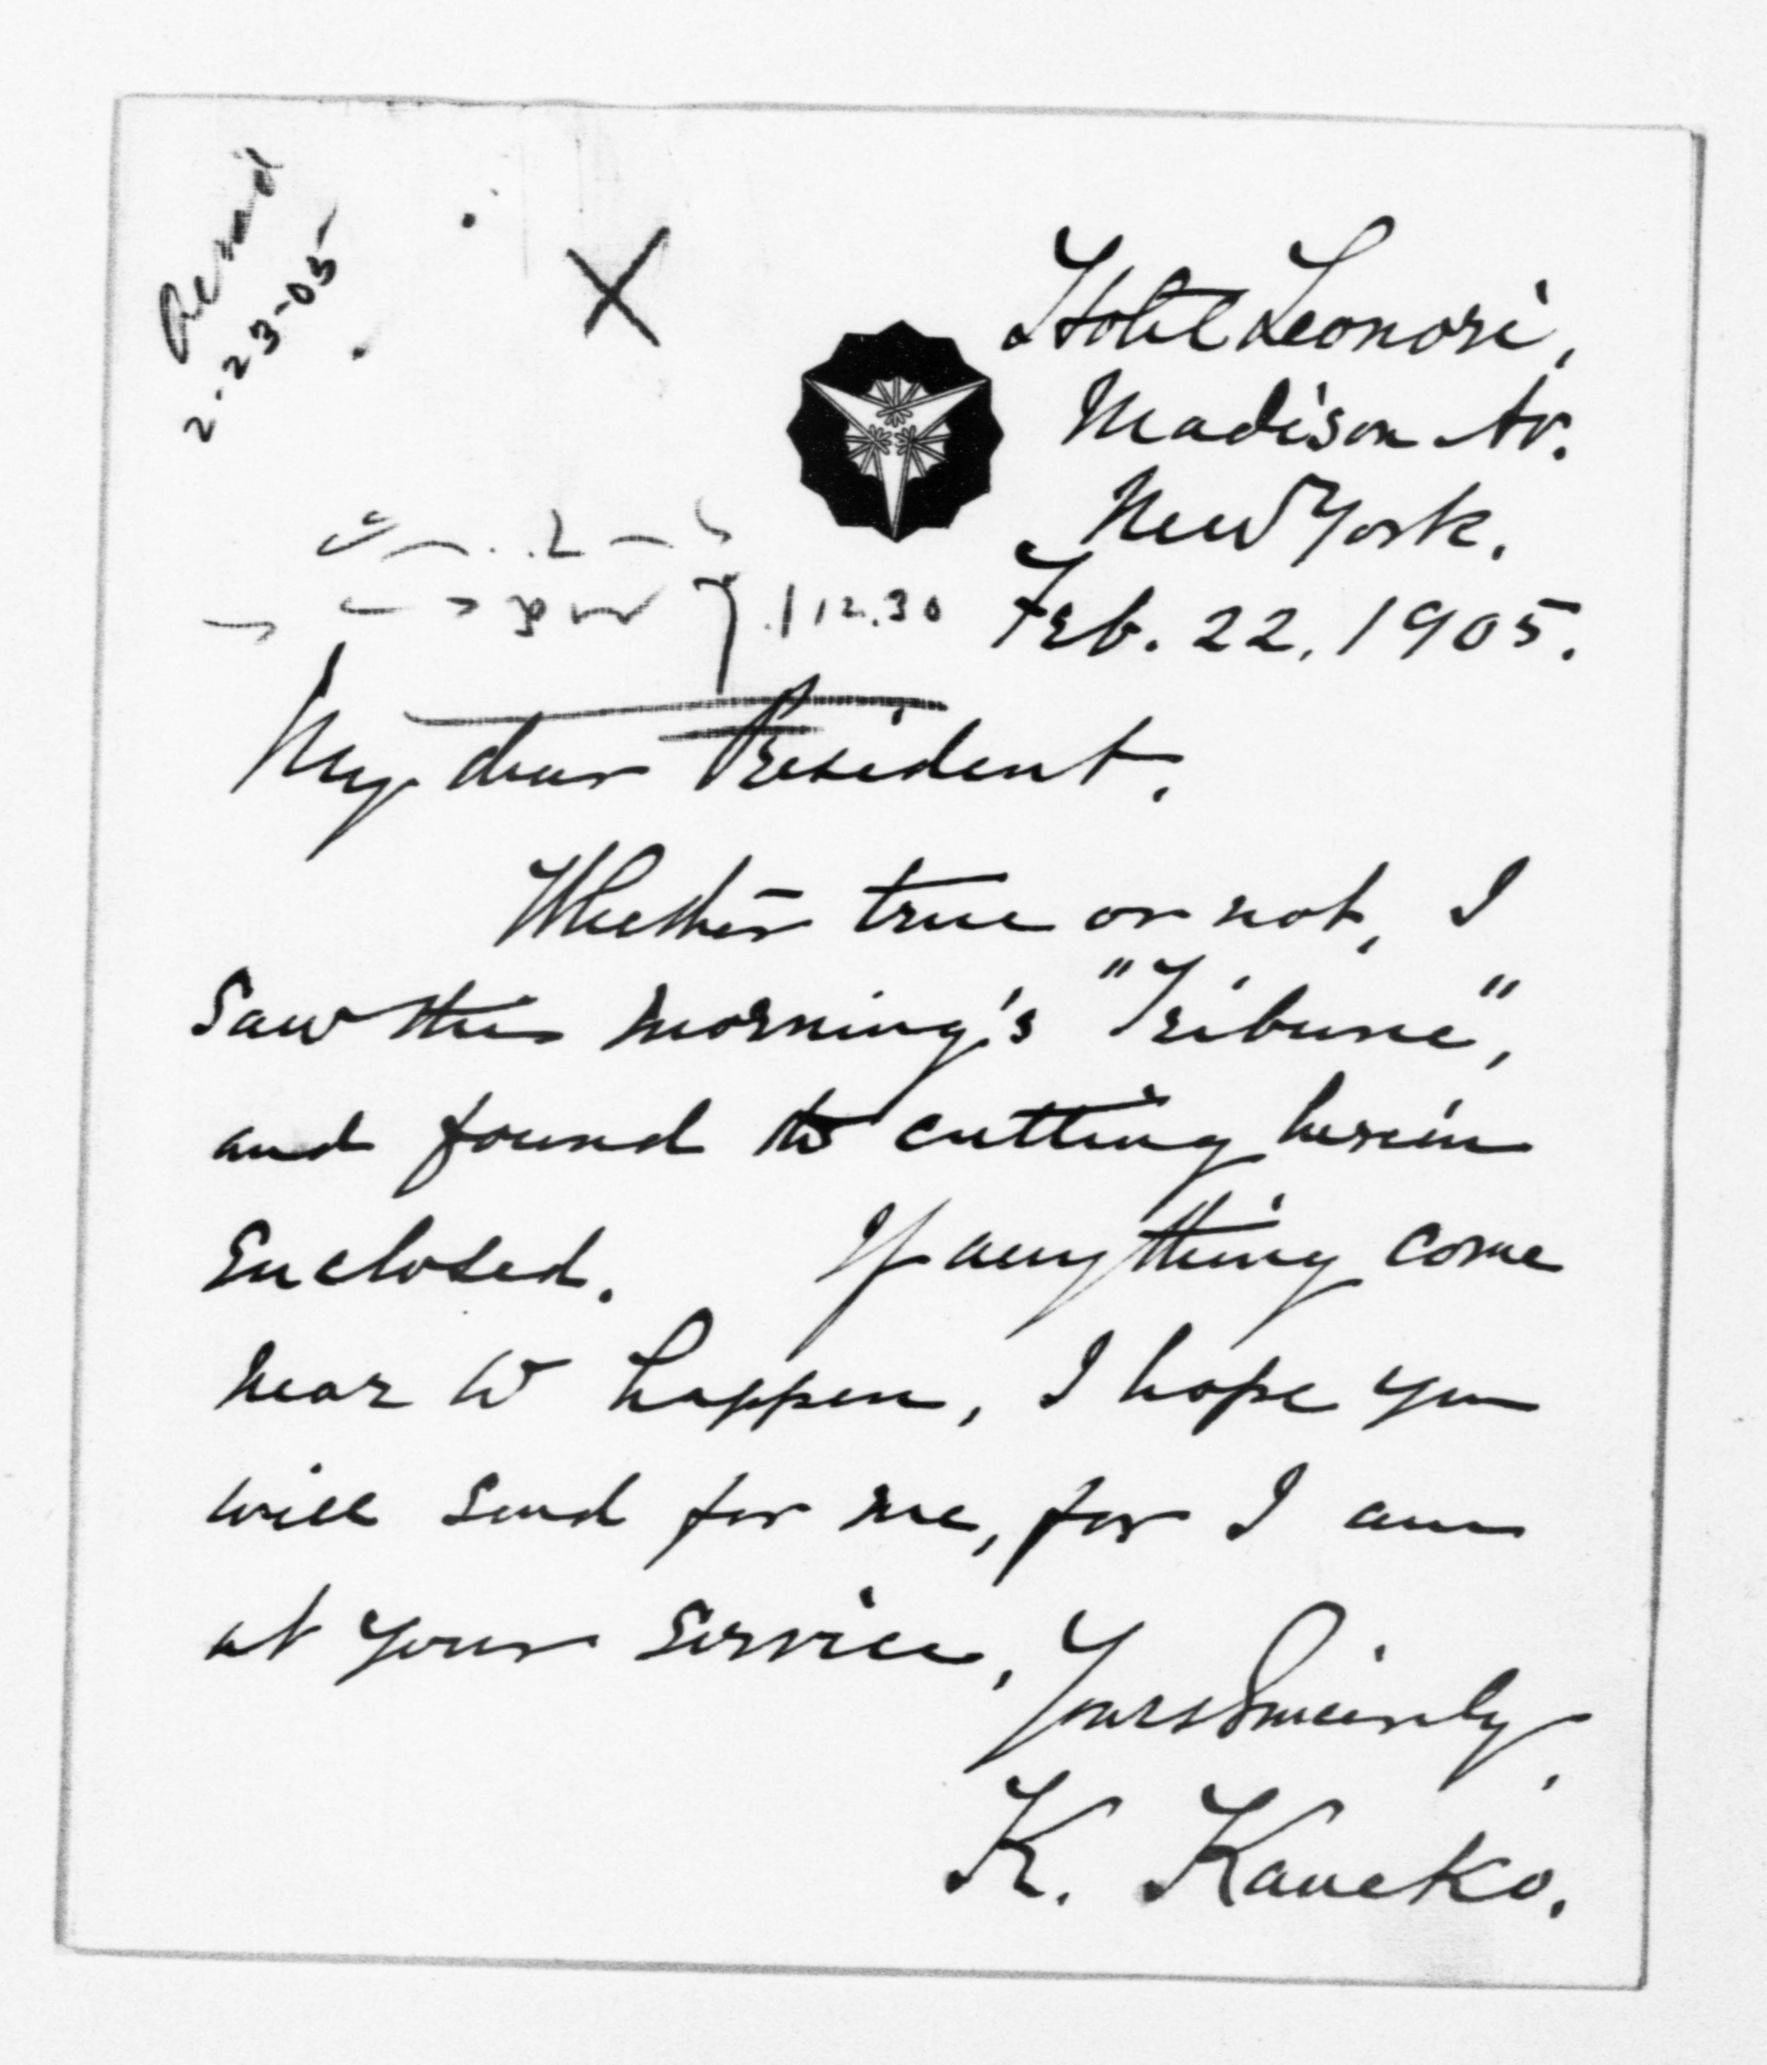 Ackn'd
2-23-05
X
Hotel Leonori,
Madison Av.
New York.
Feb. 22, 1905.
112.30
My dear President.
Whether true or not, I
saw this morning's "Tribune",
and found the cutting herein
enclosed. If anything come
near to happen, I hope you
will send for me, for I am
at your service,
Yours Sincerely,
K. Kaneko.